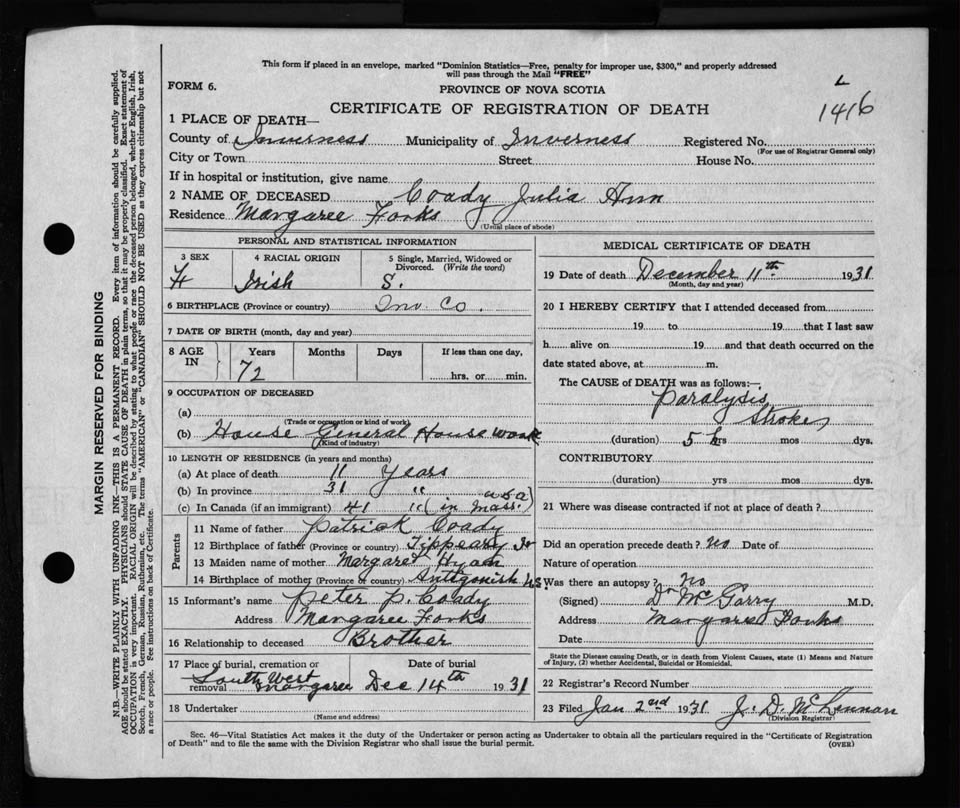 This form if placed in an envelope, marked "Dominion Statistics—Free, penalty for improper use, $300," and properly addressed
will pass through the Mail "FREE"
FORM 6.
PROVINCE OF NOVA SCOTIA
L
1416
CERTIFICATE OF REGISTRATION OF DEATH
1 PLACE OF DEATH—
County of Inverness Municipality of Inverness Registered No.
(For use of Registrar General only)
City or Town Street House No.
If in hospital or institution, give name
2 NAME OF DECEASED Coady Julia Ann
Residence Margaree Forks
(Usual place of abode)
PERSONAL AND STATISTICAL INFORMATION
3 SEX 4 RACIAL ORIGIN 5 Single, Married, Widowed or
Divorced. (Write the word)
F Irish S.
6 BIRTHPLACE (Province or country) Inv. Co.
7 DATE OF BIRTH (month, day and year)
8 AGE IN Years Months Days If less than one day,
72 hrs. or min.
9 OCCUPATION OF DECEASED
(a)
(Trade or occupation or kind of work)
(b) House General House work
(Kind of industry)
10 LENGTH OF RESIDENCE (in years and months)
(a) At place of death 11 Years
(b) In province 31 "
(c) In Canada (if an immigrant) 41 " (in Mass. U S A)
Parents
11 Name of father Patrick Coady
12 Birthplace of father (Province or country) Tipperary Ir
13 Maiden name of mother Margaret
14 Birthplace of mother (Province or country) Antigonish N.S.
15 Informant's name Peter P. Coady
Address Margaree Forks
16 Relationship to deceased Brother
17 Place of burial, cremation or Date of burial
removal South West Margaree Dec 14th 1931
18 Undertaker
(Name and address)
MEDICAL CERTIFICATE OF DEATH
19 Date of death December 11th 1931
(Month, day and year)
20 I HEREBY CERTIFY that I attended deceased from
19 to 19 that I last saw
h alive on 19 and that death occurred on the
date stated above, at m.
The CAUSE of DEATH was as follows:—
Paralysis
Stroke
(duration) 5 hrs mos dys.
CONTRIBUTORY
(duration) yrs mos dys.
21 Where was disease contracted if not at place of death?
Did an operation precede death? No Date of
Nature of operation
Was there an autopsy? No
(Signed) Dr McGarry M.D.
Address Margaree Forks
Date
State the Disease causing Death, or in death from Violent Causes, state (1) Means and Nature
of Injury, (2) whether Accidental, Suicidal or Homicidal.
22 Registrar's Record Number
23 Filed Jan 2nd 1931 J. D. McLennan
(Division Registrar)
Sec. 46—Vital Statistics Act makes it the duty of the Undertaker or person acting as Undertaker to obtain all the particulars required in the "Certificate of Registration
of Death" and to file the same with the Division Registrar who shall issue the burial permit.
(OVER)
MARGIN RESERVED FOR BINDING
N.B.—WRITE PLAINLY WITH UNFADING INK—THIS IS A PERMANENT RECORD. Every item of information should be carefully supplied.
AGE should be stated EXACTLY. PHYSICIANS should STATE CAUSE OF DEATH in plain terms, so that it may be properly classified. Exact statement of
OCCUPATION is very important. RACIAL ORIGIN will be described by stating to what people or race the deceased person belonged, whether English, Irish,
Scotch, French, German, Russian, Ruthenian, etc. The terms "AMERICAN" or "CANADIAN" SHOULD NOT BE USED as they express citizenship but not
a race or people. See instructions on back of Certificate.